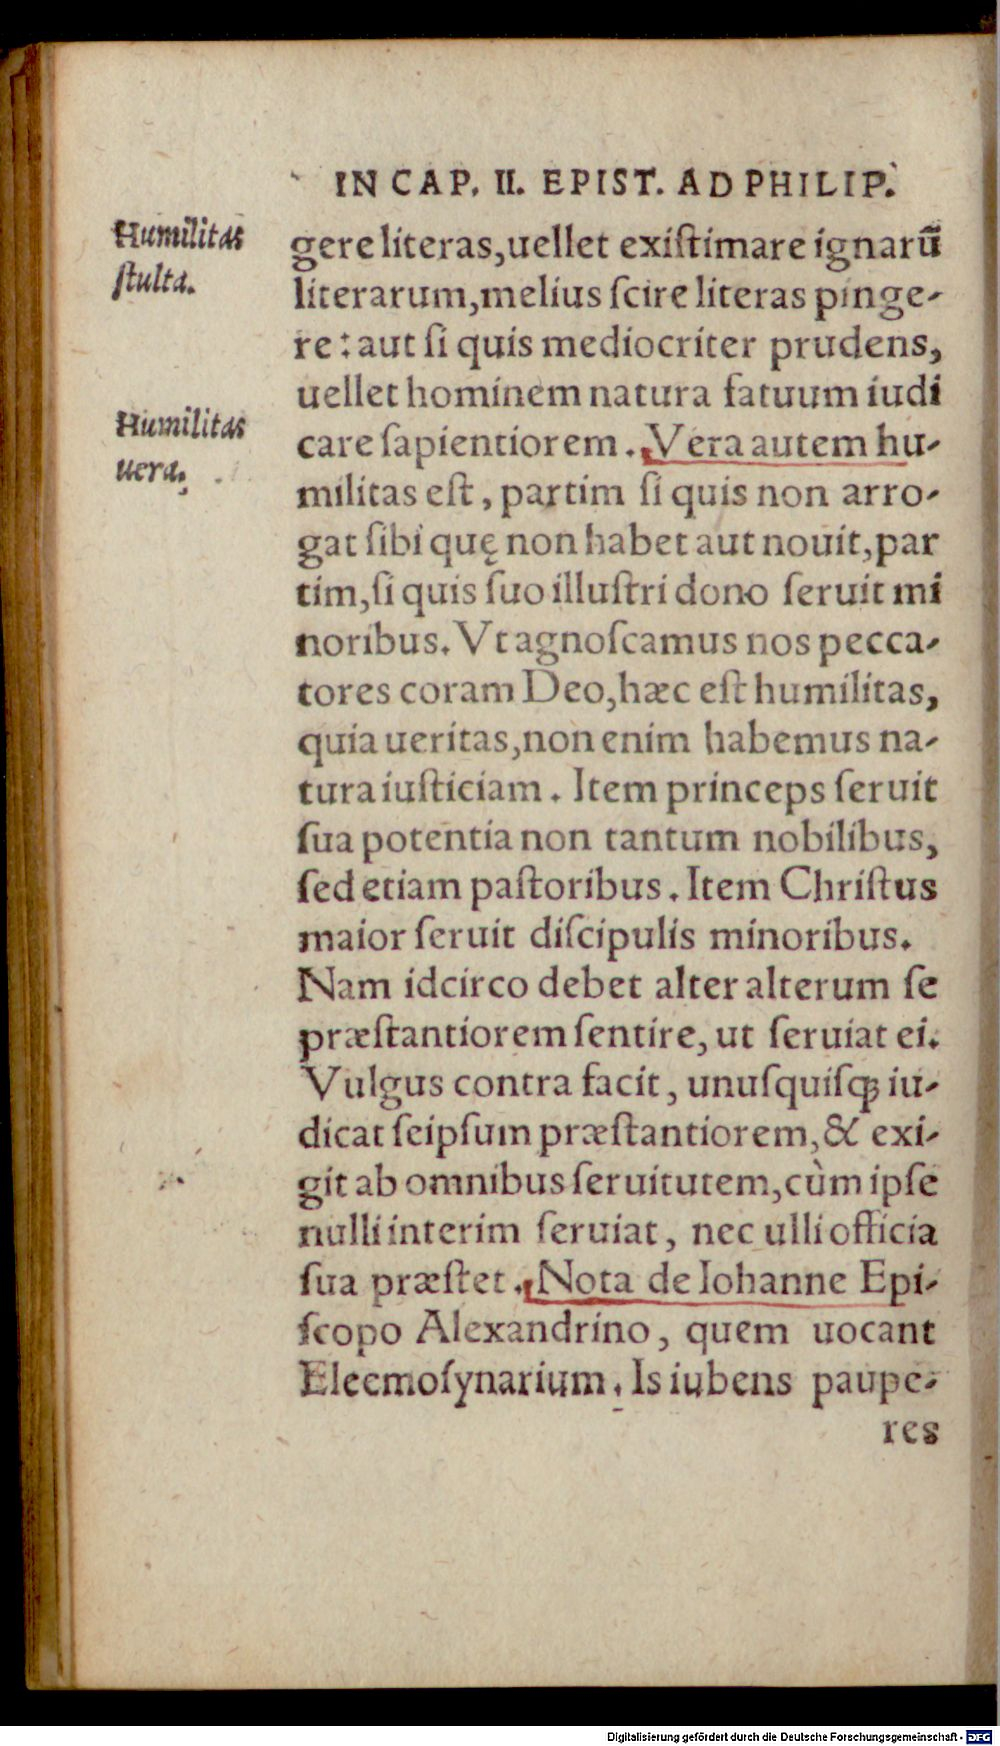 IN CAP. II. EPIST. AD PHILIP.
Humilitas
ſtulta.
gere literas, uellet exiſtimare ignarũ
literarum, melius ſcire literas pinge-
re: aut ſi quis mediocriter prudens,
uellet hominem natura fatuum iudi
care ſapientiorem. Vera autem hu-
Humilitas
uera.
militas eſt, partim ſi quis non arro-
gat ſibi quę non habet aut nouit, par
tim, ſi quis ſuo illuſtri dono ſeruit mi
noribus. Vt agnoſcamus nos pecca-
tores coram Deo, hæc eſt humilitas,
quia ueritas, non enim habemus na-
tura iuſticiam. Item princeps ſeruit
ſua potentia non tantum nobilibus,
ſed etiam paſtoribus. Item Chriſtus
maior ſeruit diſcipulis minoribus.
Nam idcirco debet alter alterum ſe
præſtantiorem ſentire, ut ſeruiat ei.
Vulgus contra facit, unuſquiſqꝫ iu-
dicat ſeipſum præſtantiorem, & exi-
git ab omnibus ſeruitutem, cùm ipſe
nulli interim ſeruiat, nec ulli officia
ſua præſtet. Nota de Iohanne Epi-
ſcopo Alexandrino, quem uocant
Eleemoſynarium. Is iubens paupe-
res
Digitalisierung gefördert durch die Deutsche Forschungsgemeinschaft - DFG